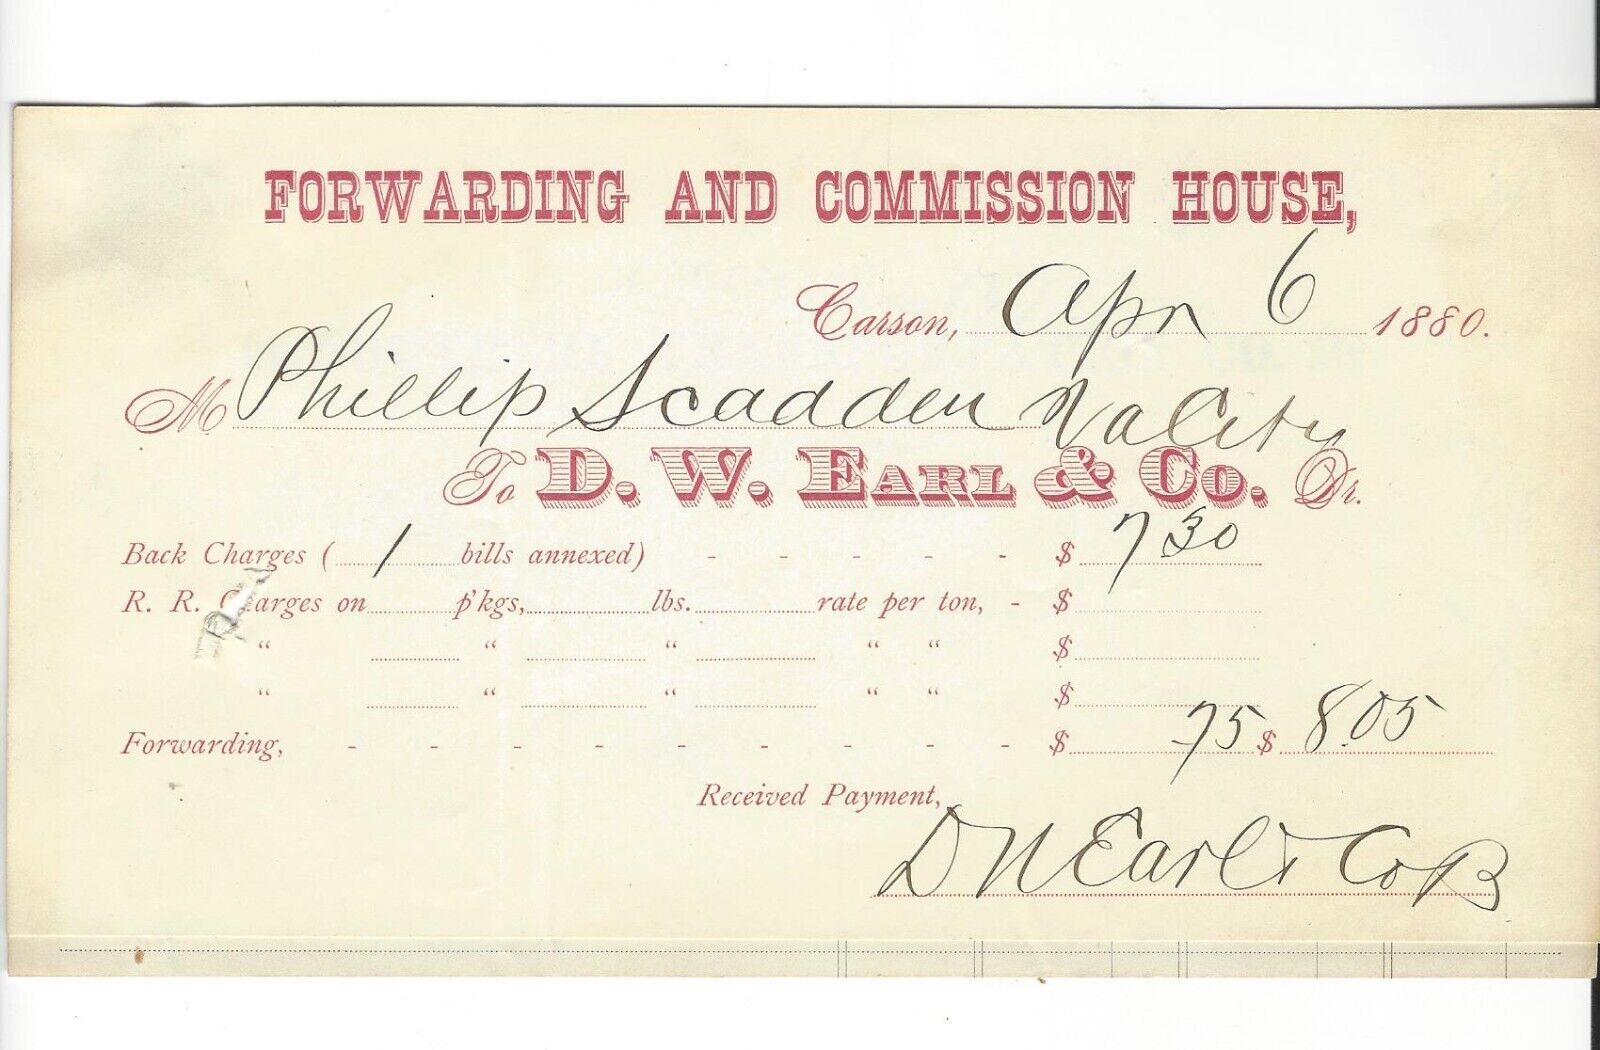 FORWARDING AND COMMISSION HOUSE,
Carson, Apr 6 1880.
M Phillip Scadden Va City
To D. W. EARL & Co. Dr.
Back Charges ( 1 bills annexed) - - - - - $ 7 30
R. R. Charges on p'kgs, lbs. rate per ton, - $
" " " " " $
" " " " " $
Forwarding, - - - - - - - - - $ 75 $ 8.05
Received Payment,
D W Earl & Co B